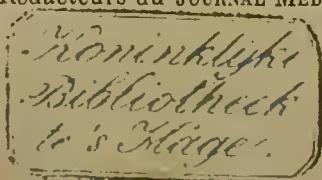 Rédacteurs du JOURNAL MÉD
Koninklijke
Bibliotheek
te 's Hage.